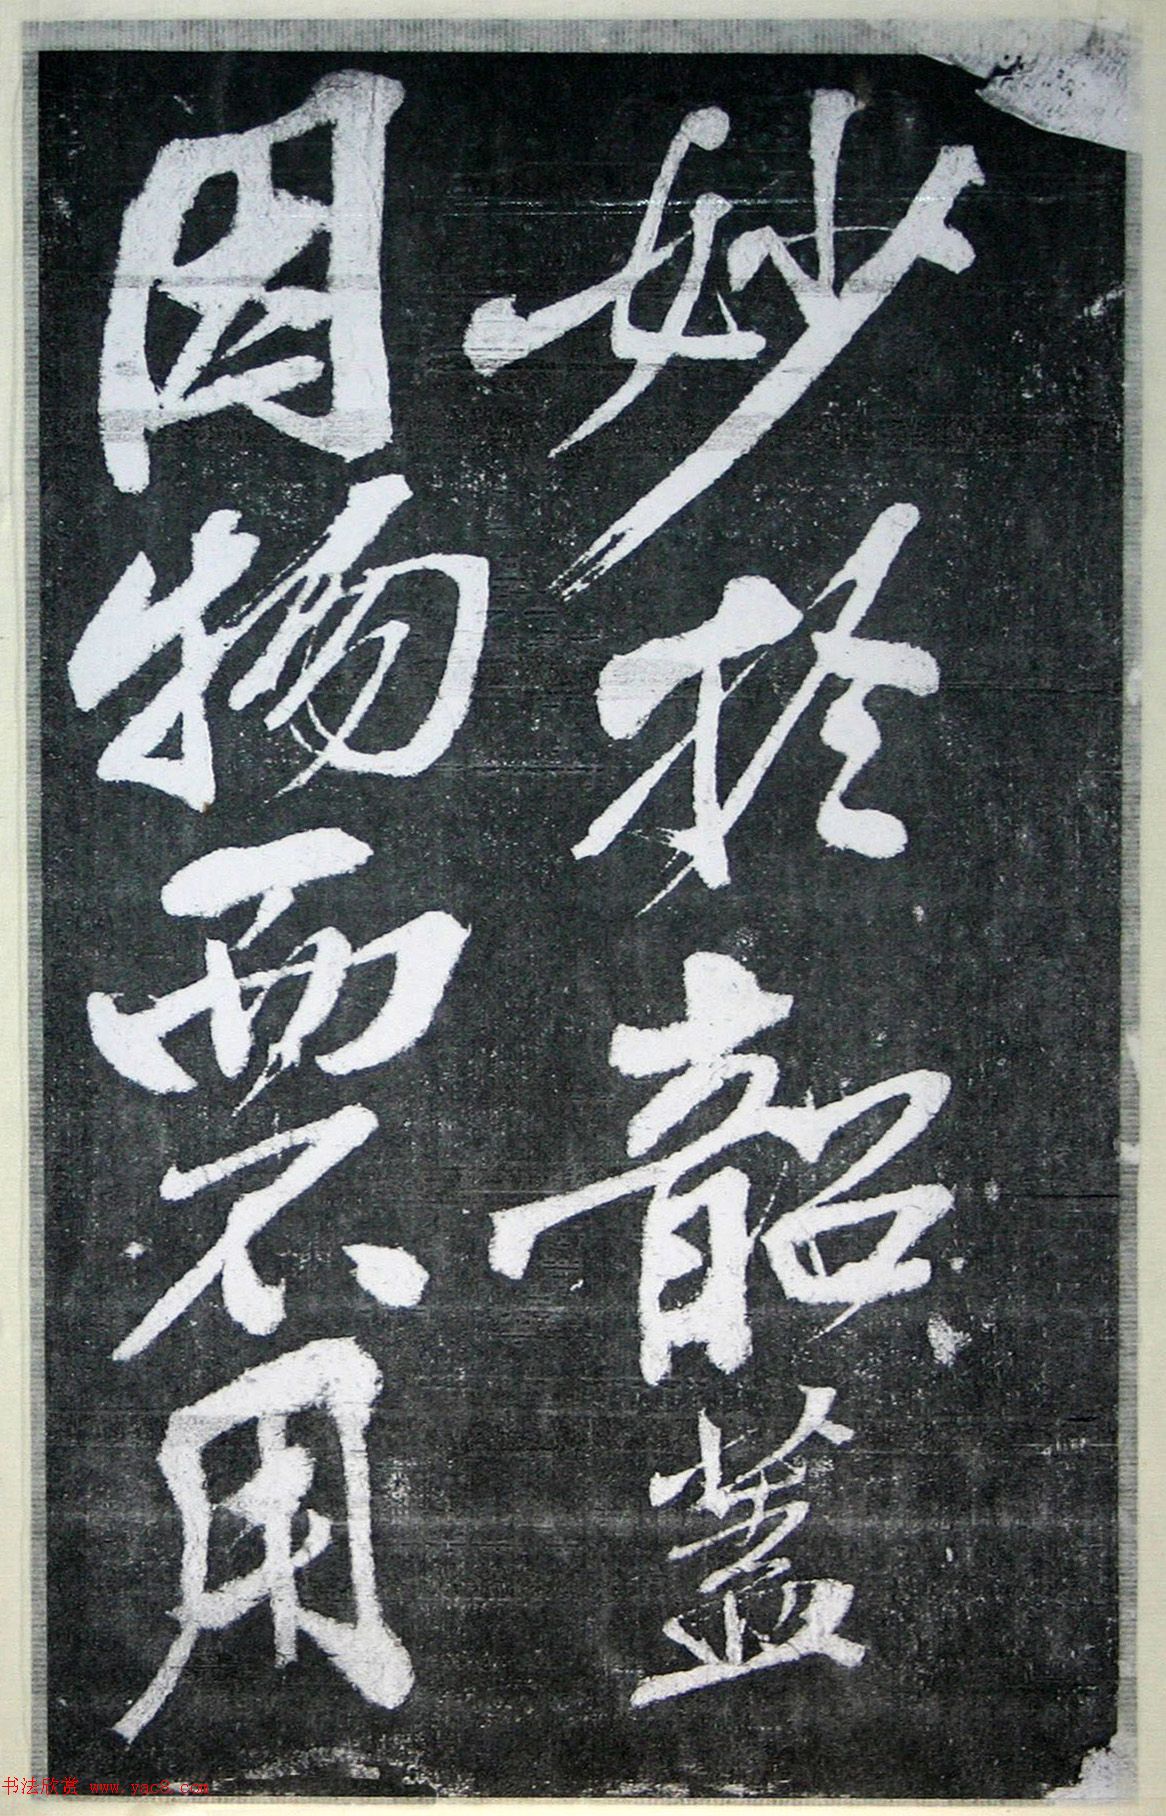 妙於韶蓋
因物而不用
书法欣赏 www.yac8.com